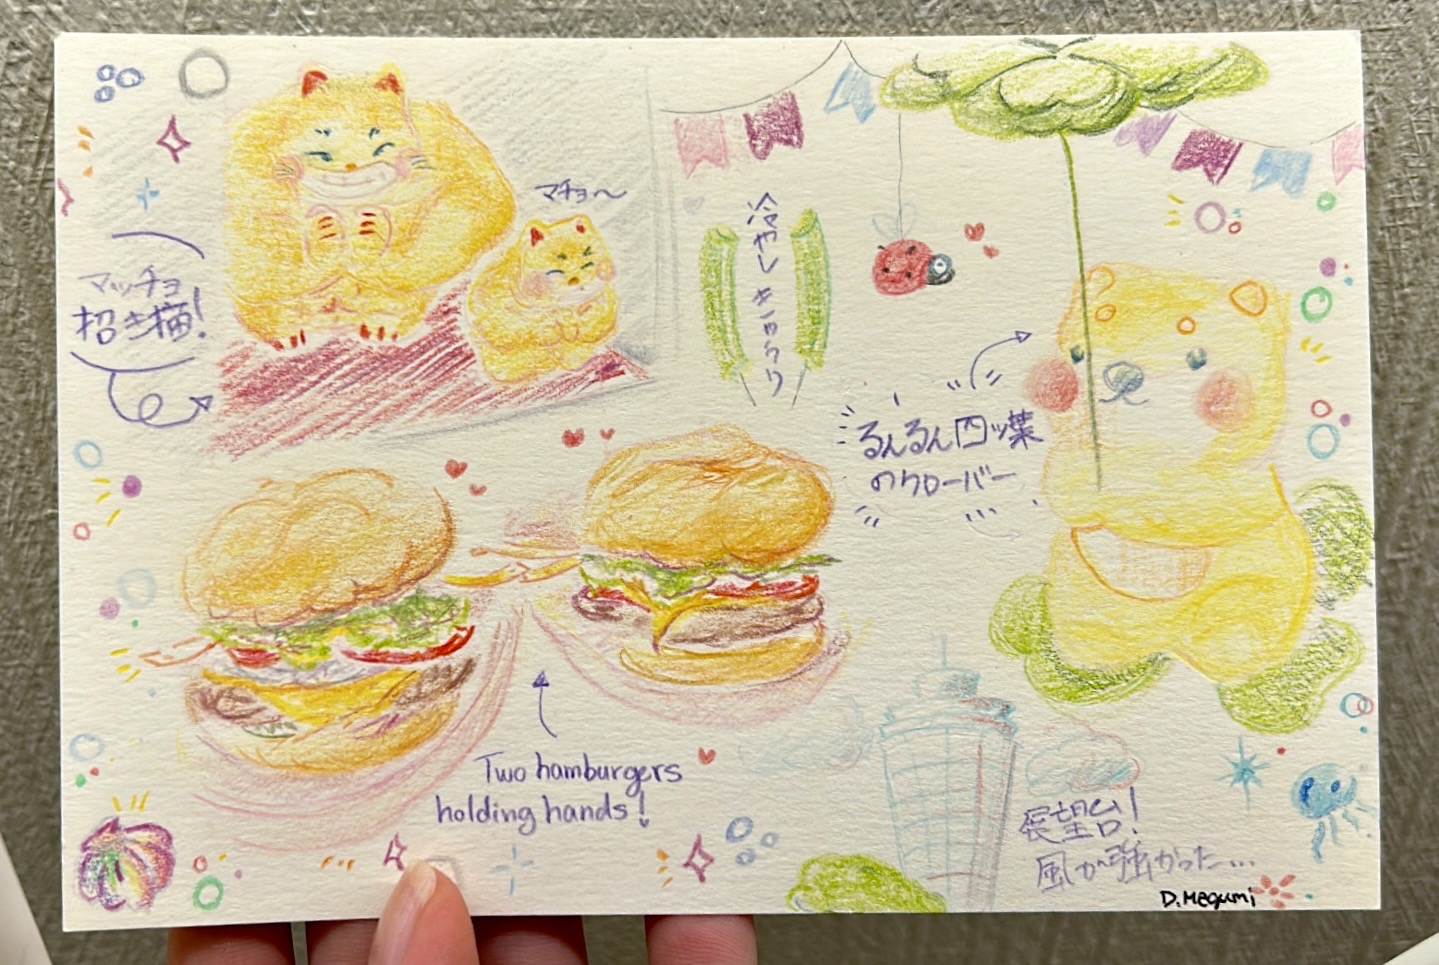 マッチョ
招き猫!
マチョ〜
冷やしきゅうり
るんるん四ッ葉
のクローバー
Two hamburgers
holding hands!
展望台!
風が強かった...
D.Megumi